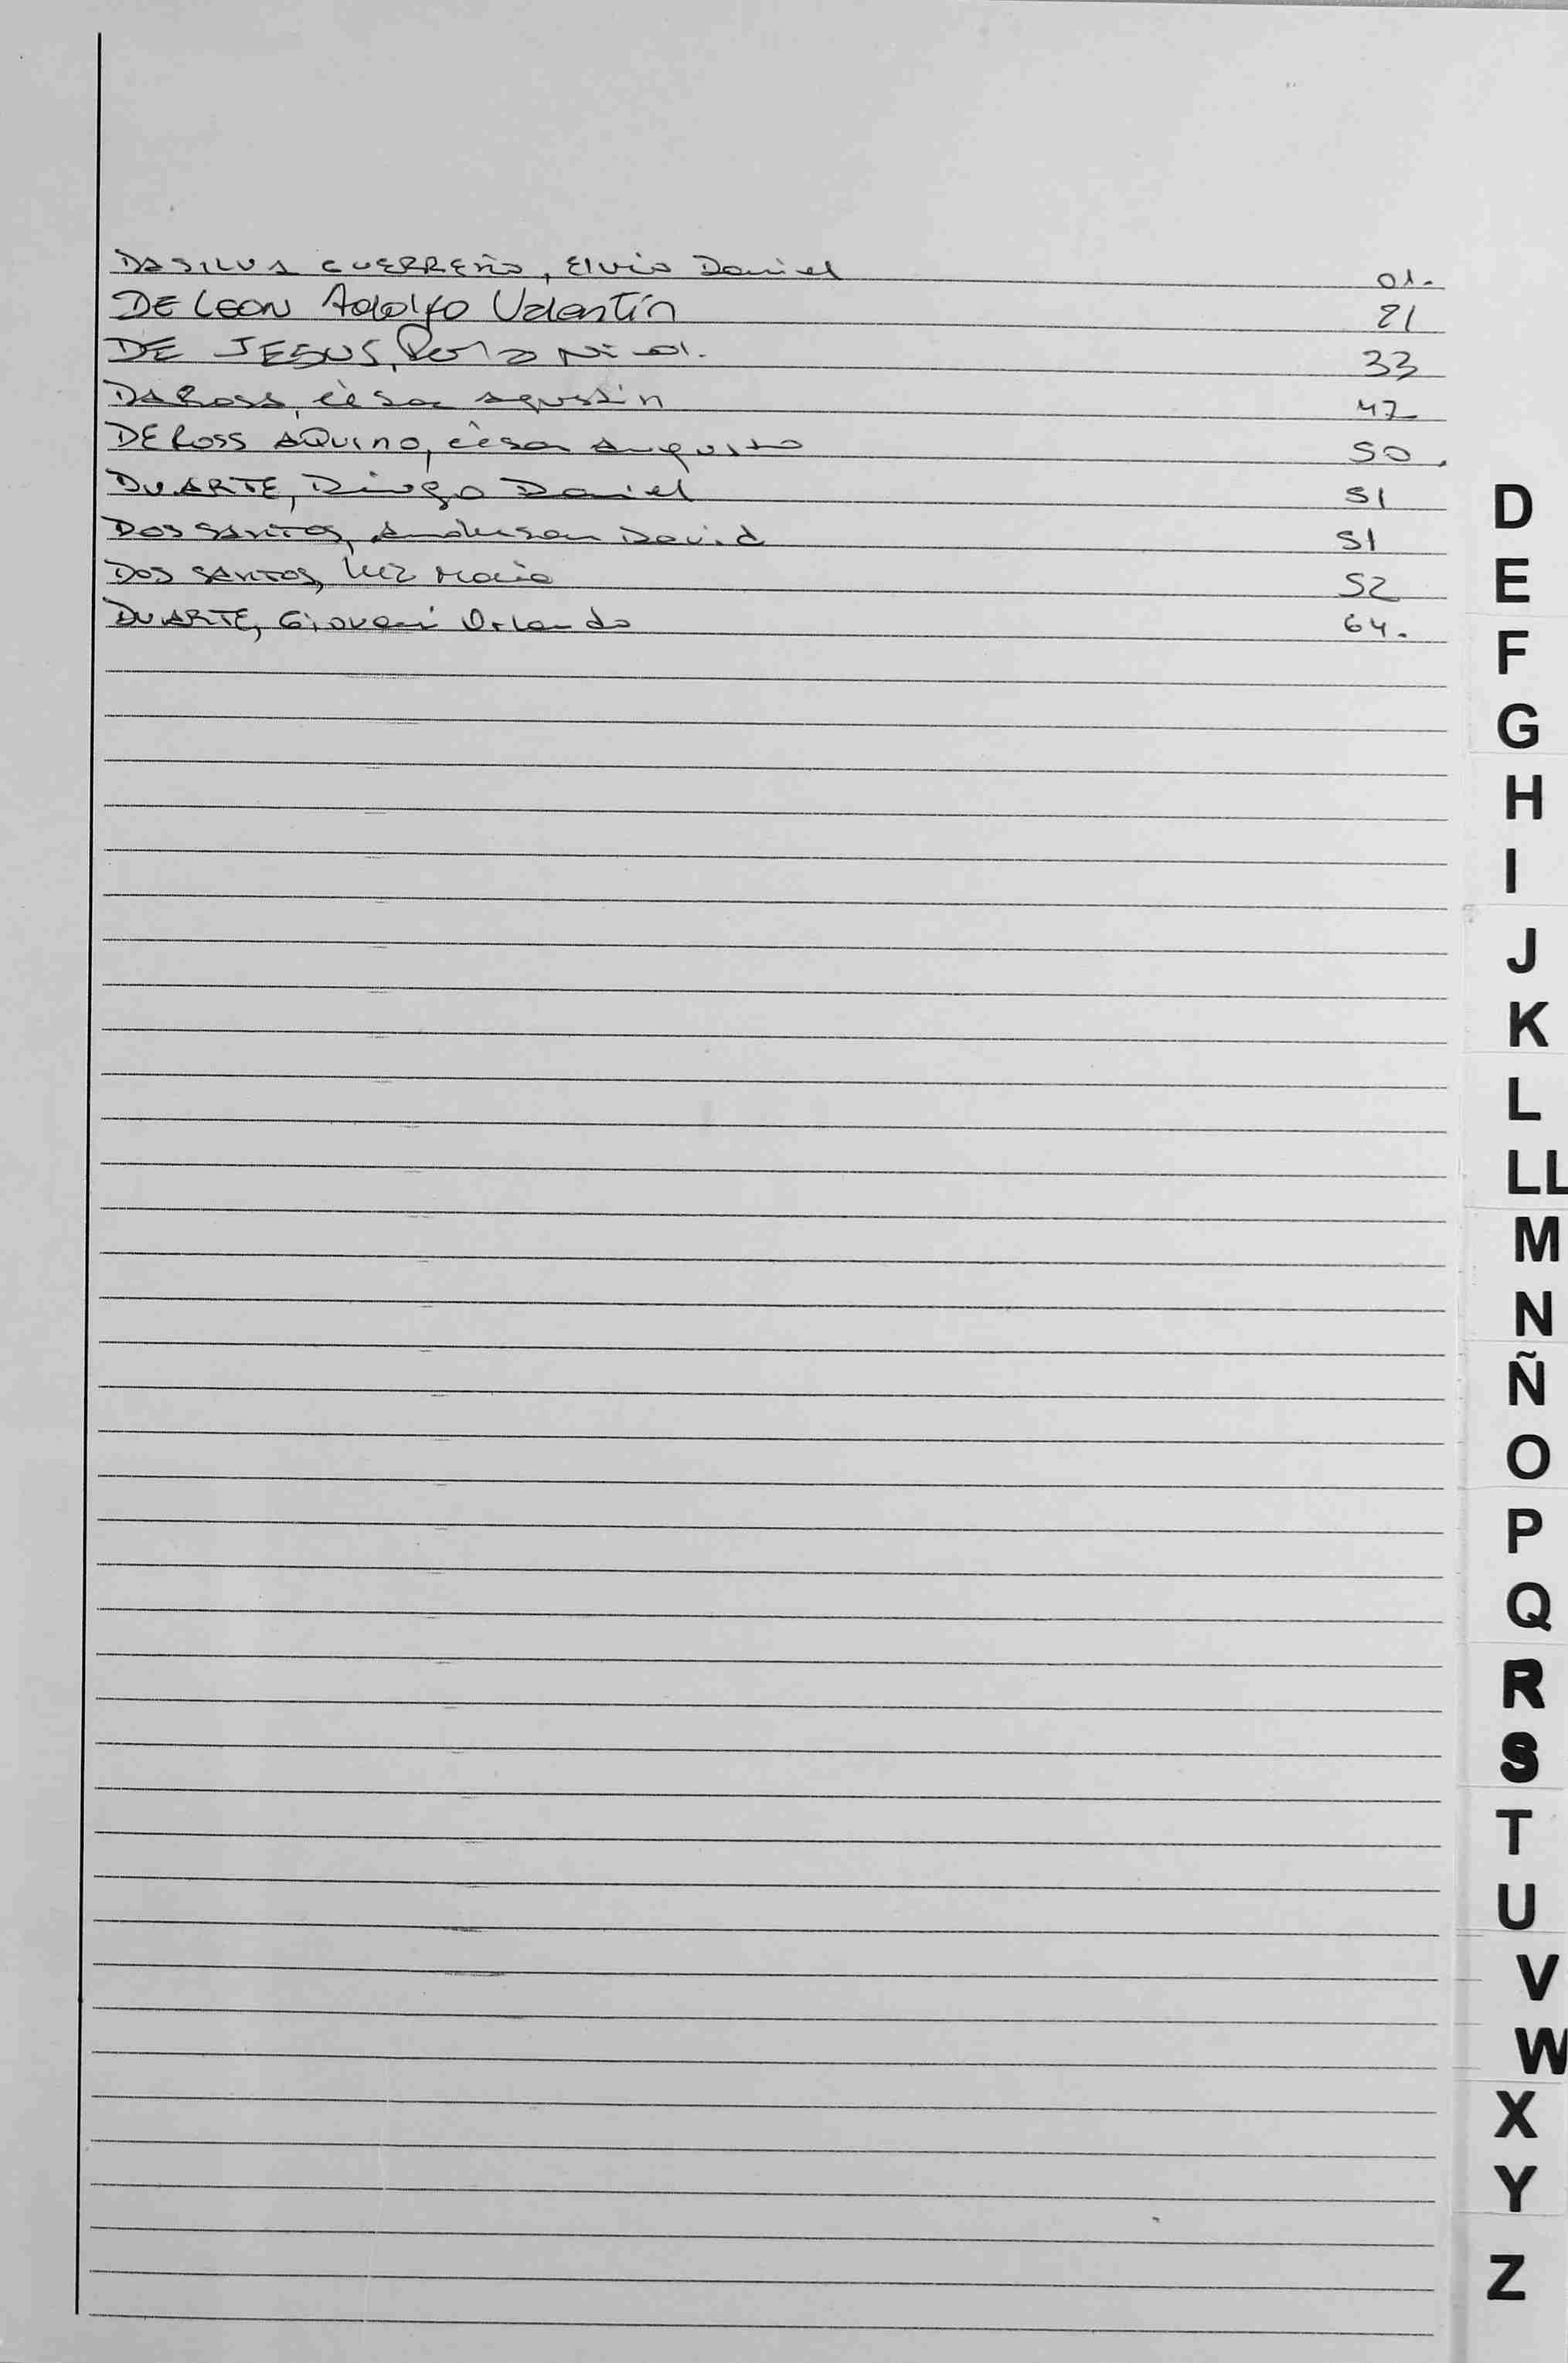 DASILVA GUERREÑO, Elvio Daniel 01.
DE LEON Adolfo Valentín 21
DE JESUS, 33
DAROSS, César Agustín 47
DEROSS AQUINO, César Augusto 50.
DUARTE, Diogo Daniel 51
DOS SANTOS, Anderson David 51
DOS SANTOS, Luz Maria 52
DUARTE, Giovani Orlando 64.
D
E
F
G
H
I
J
K
L
LL
M
N
Ñ
O
P
Q
R
S
T
U
V
W
X
Y
Z